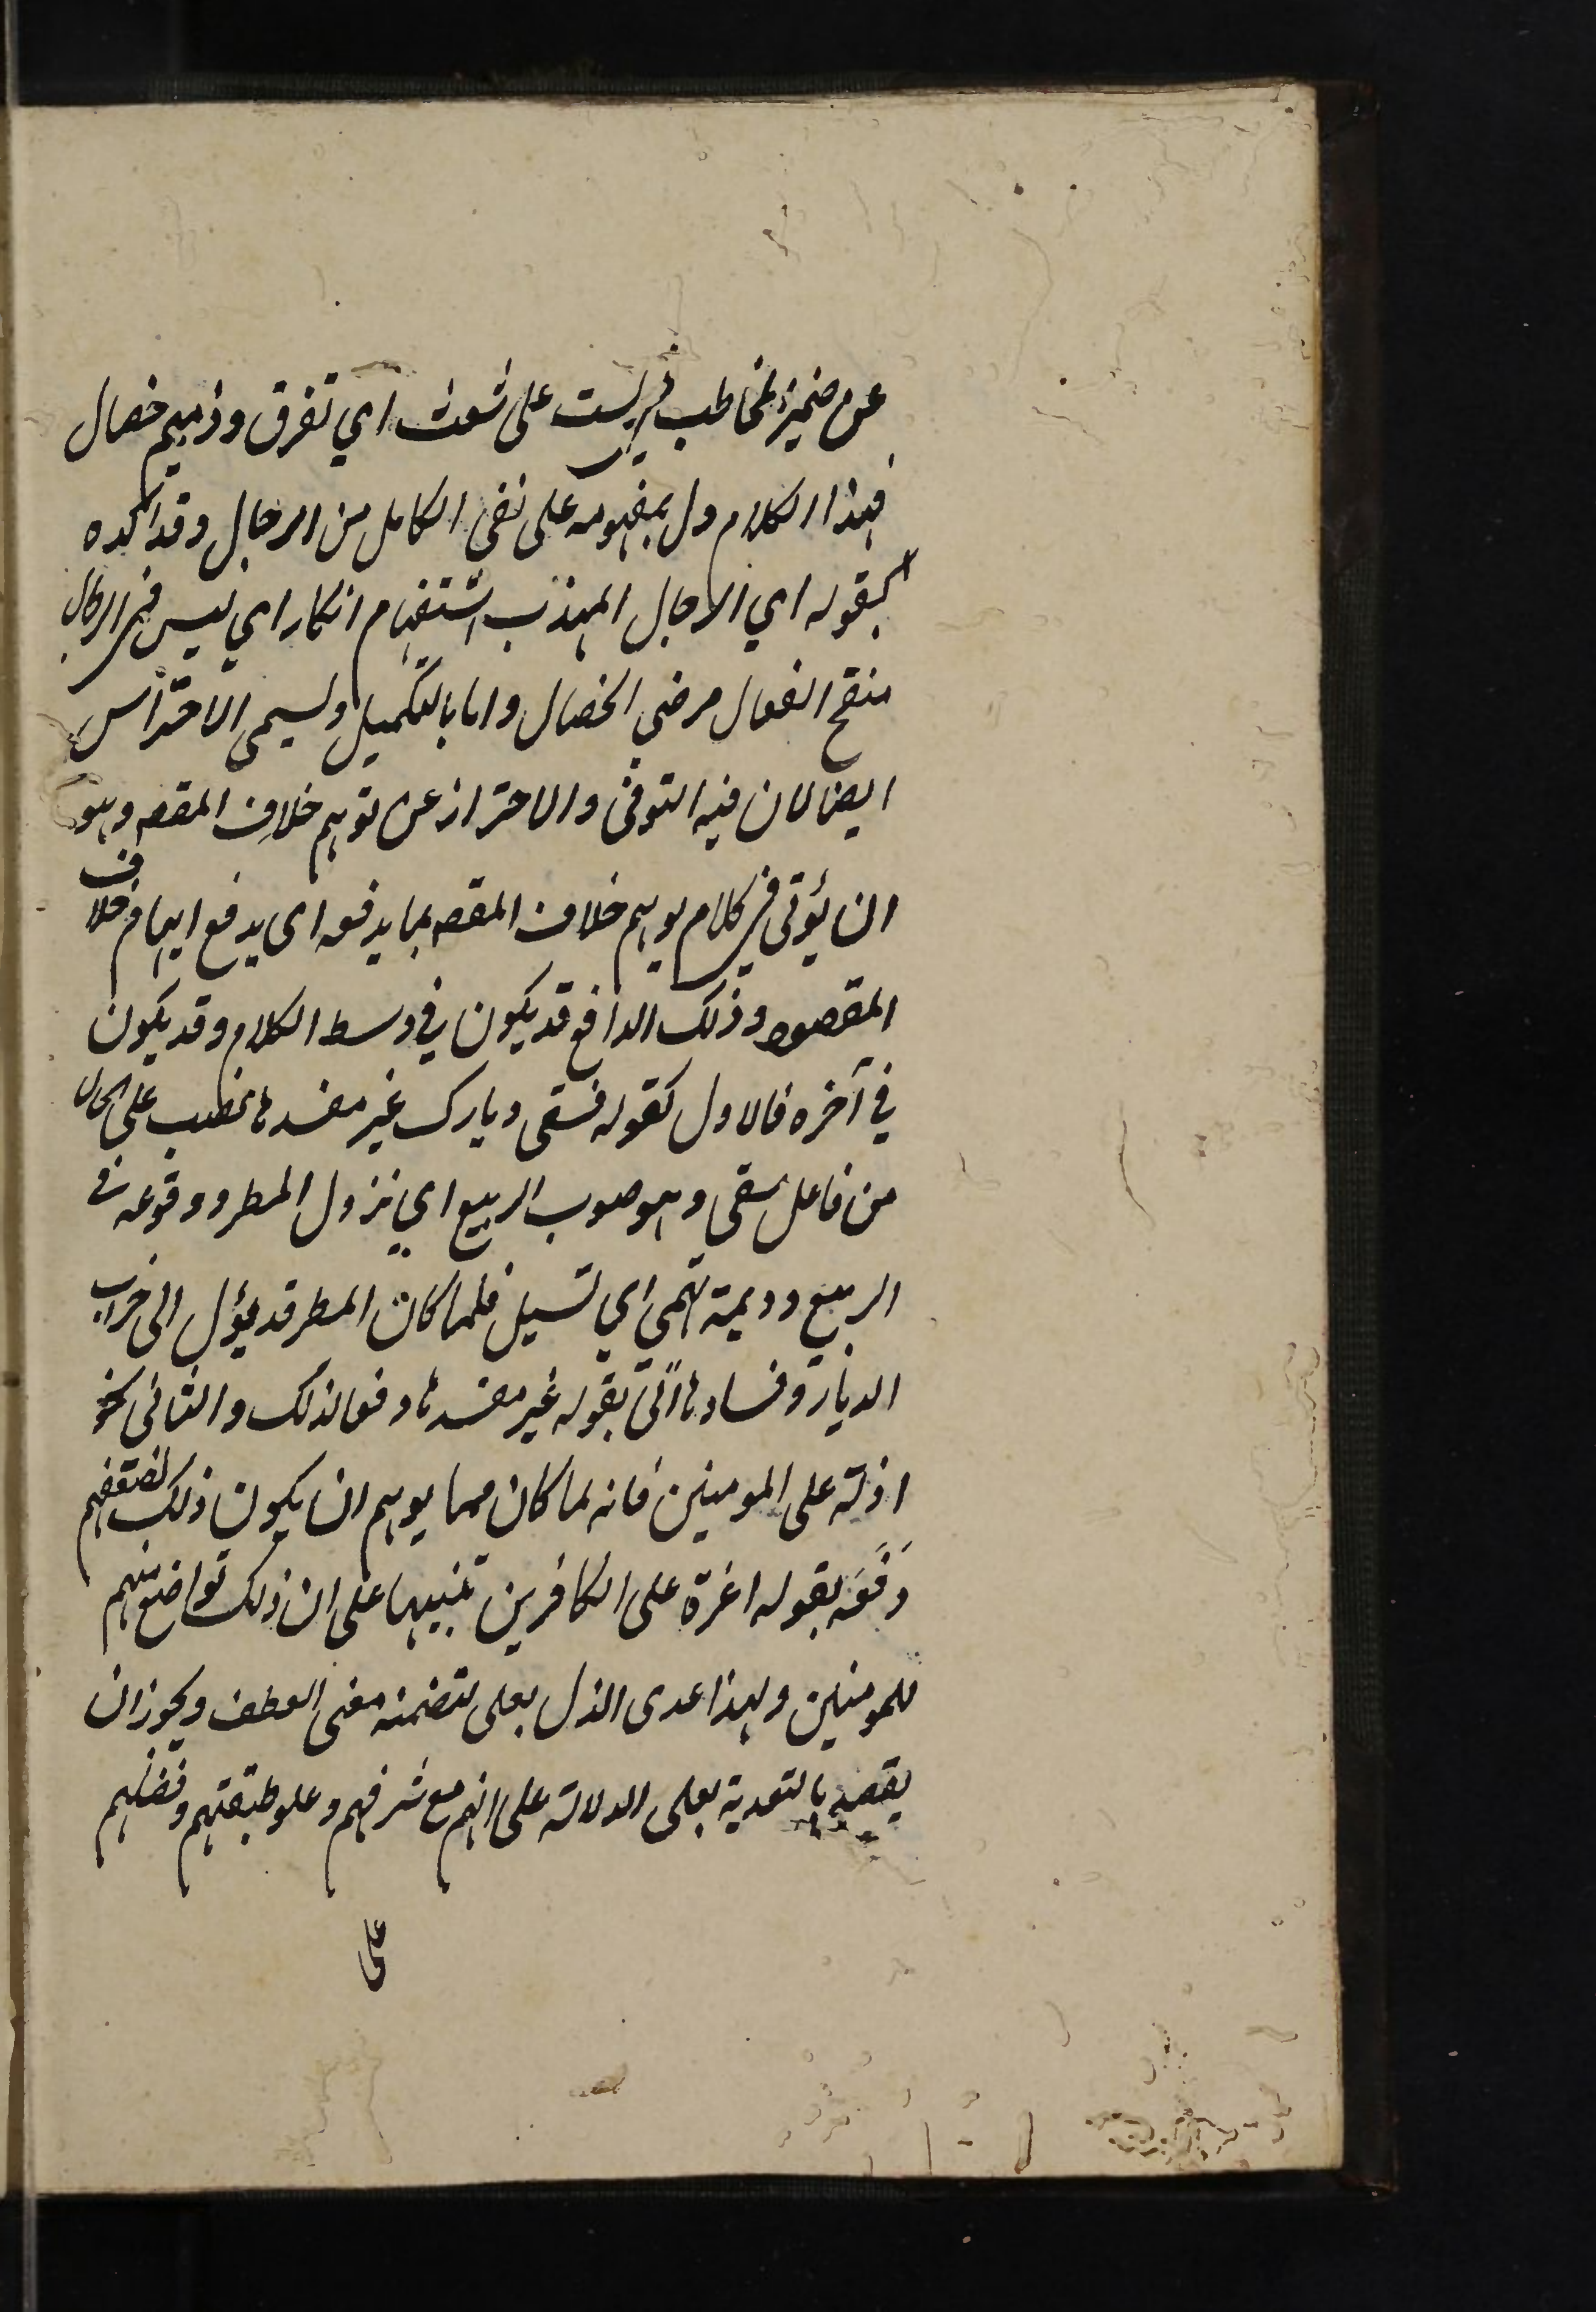 عن ضمير المخاطب في لست على شعث اي تفرق وذميم خصال
فهذا الكلام دل بمفهومه على نفي الكامل من الرجال وقد اكده
بقوله اي الرجال المهذب استفهام انكار اي ليس في الرجال
منقح الفعال مرضي الخصال واما بالتكميل ويسمى الاحتراس
ايضا لان فيه التوقى والاحتراز عن توهم خلاف المقصه وهو
ان يؤتى في كلام يوهم خلاف المقصه بما يدفعه اى يدفع ايهام خلاف
المقصود وذلك الدافع قد يكون في وسط الكلام وقد يكون
في آخره فالاول كقوله فسقى ديارك غير مفسدها نصب على الحال
من فاعل سقى وهو صوب الربيع اي نزول المطر ووقوعه في
الربيع وديمة تهمي اي تسيل فلما كان المطر قد يؤل الى خراب
الديار وفسادها اتى بقوله غير مفسدها دفعا لذلك والثانى نحو
اذلة على المومنين فانه لما كان مما يوهم ان يكون ذلك لضعفهم
دَفَعَه بقوله اعزة على الكافرين تنبيها على ان ذلك تواضع منهم
للمومنين ولهذا عدى الذل بعلى لتضمنه معنى العطف ويجوز ان
يقصد بالتعدية بعلى الدلالة على انهم مع شرفهم وعلو طبقتهم وفضلهم
على